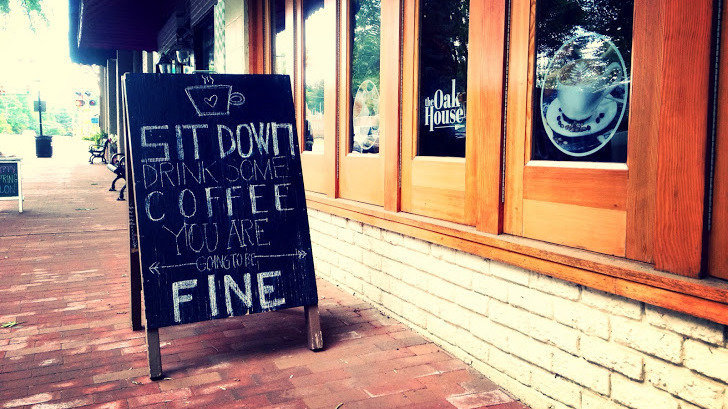 SIT DOWN
DRINK SOME
COFFEE
YOU ARE
GOING TO BE
FINE
the Oak
House